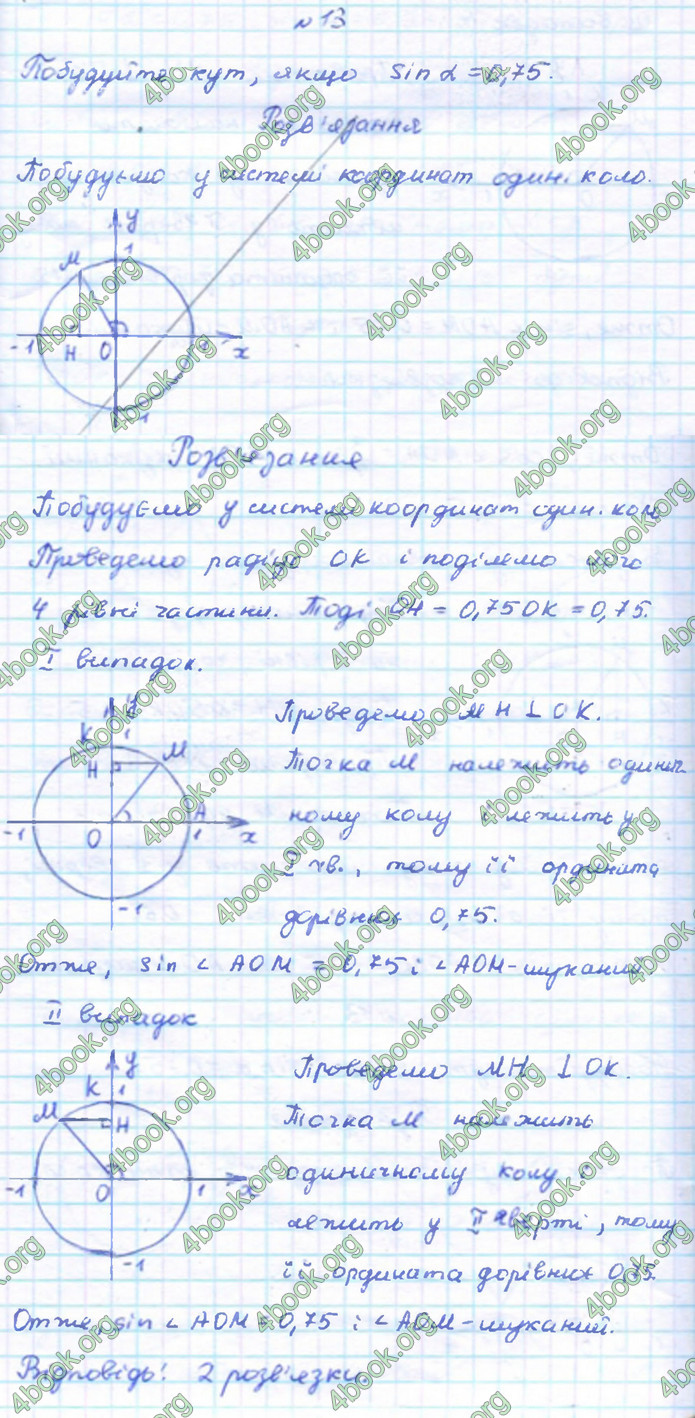 № 13
Побудуйте кут, якщо sin α = 0,75.
Розв'язання
Побудуємо у системі координат один. коло.
y
1
M
-1 H O 1 x
-1
Розв'язання
Побудуємо у системі координат один. коло
Проведемо радіус OK і поділемо його
4 рівні частини. Тоді OH = 0,75 OK = 0,75.
I випадок.
y
K 1
H M
A
-1 O 1 x
-1
Проведемо MH ⊥ OK.
Точка M належить одинич-
ному колу і лежить у
I чв., тому її ордината
дорівнює 0,75.
Отже, sin ∠ AOM = 0,75 і ∠ AOM - шуканий
II випадок
y
K 1
M H
-1 O 1 x
-1
Проведемо MH ⊥ OK.
Точка M належить
одиничному колу і
лежить у II чверті, тому
її ордината дорівнює 0,75.
Отже, sin ∠ AOM = 0,75 і ∠ AOM - шуканий.
Відповідь: 2 розв'язки.
4book.org